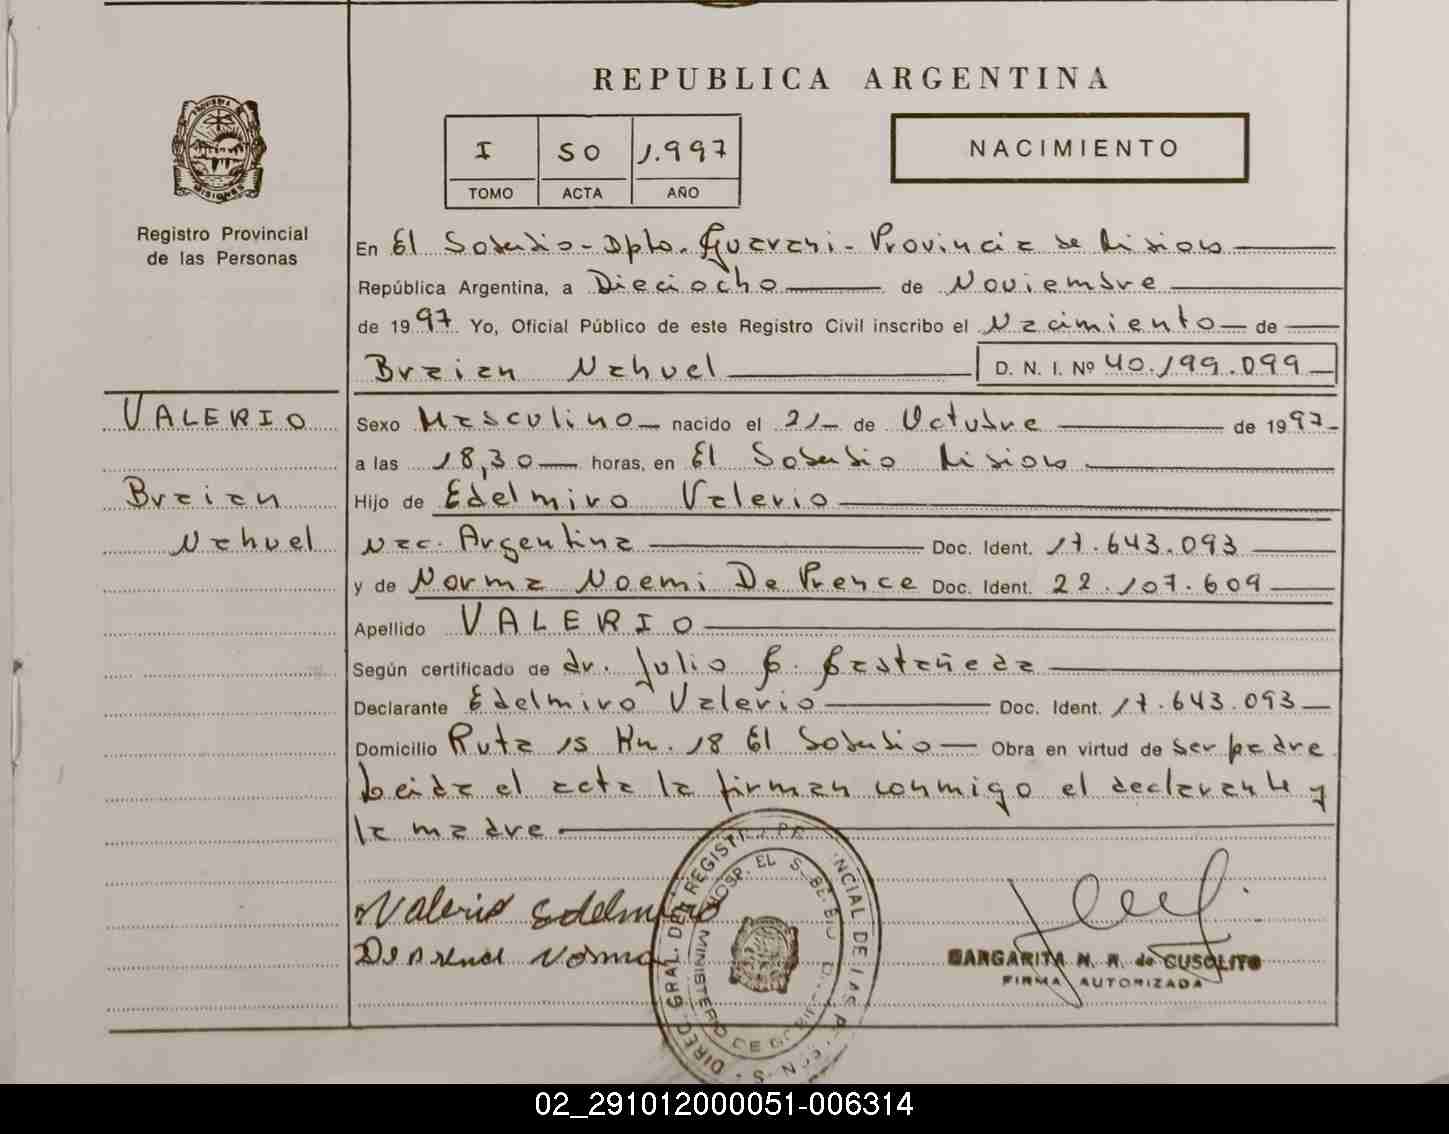 REPUBLICA ARGENTINA
PROVINCIA DE
MISIONES
Registro Provincial
de las Personas
I 50 1.997
TOMO ACTA AÑO
NACIMIENTO
En El Soberbio - Dpto. Guarani - Provincia de Misiones
República Argentina, a Dieciocho de Noviembre
de 1997 Yo, Oficial Público de este Registro Civil inscribo el Nacimiento de
Braian Nahuel D. N. I. Nº 40.199.099
VALERIO
Braian
Nahuel
Sexo Masculino nacido el 21 de Octubre de 1997
a las 18,30 horas, en El Soberbio Misiones
Hijo de Edelmiro Valerio
Nac. Argentina Doc. Ident. 17.643.093
y de Norma Noemi De Prence Doc. Ident. 22.107.609
Apellido VALERIO
Según certificado de dr. Julio C. Castañeda
Declarante Edelmiro Valerio Doc. Ident. 17.643.093
Domicilio Ruta 15 Km. 18 El Soberbio Obra en virtud de ser padre
Leida el acta la firman conmigo el declarante y
la madre
Valerio Edelmiro
Norma
DIREC. GRAL. DEL REGISTRO PROVINCIAL DE LAS PERSONAS
HOSP. EL SOBERBIO
MINISTERIO DE GOBIERNO
MARGARITA N. R. de CUSOLITO
FIRMA AUTORIZADA
02_291012000051-006314